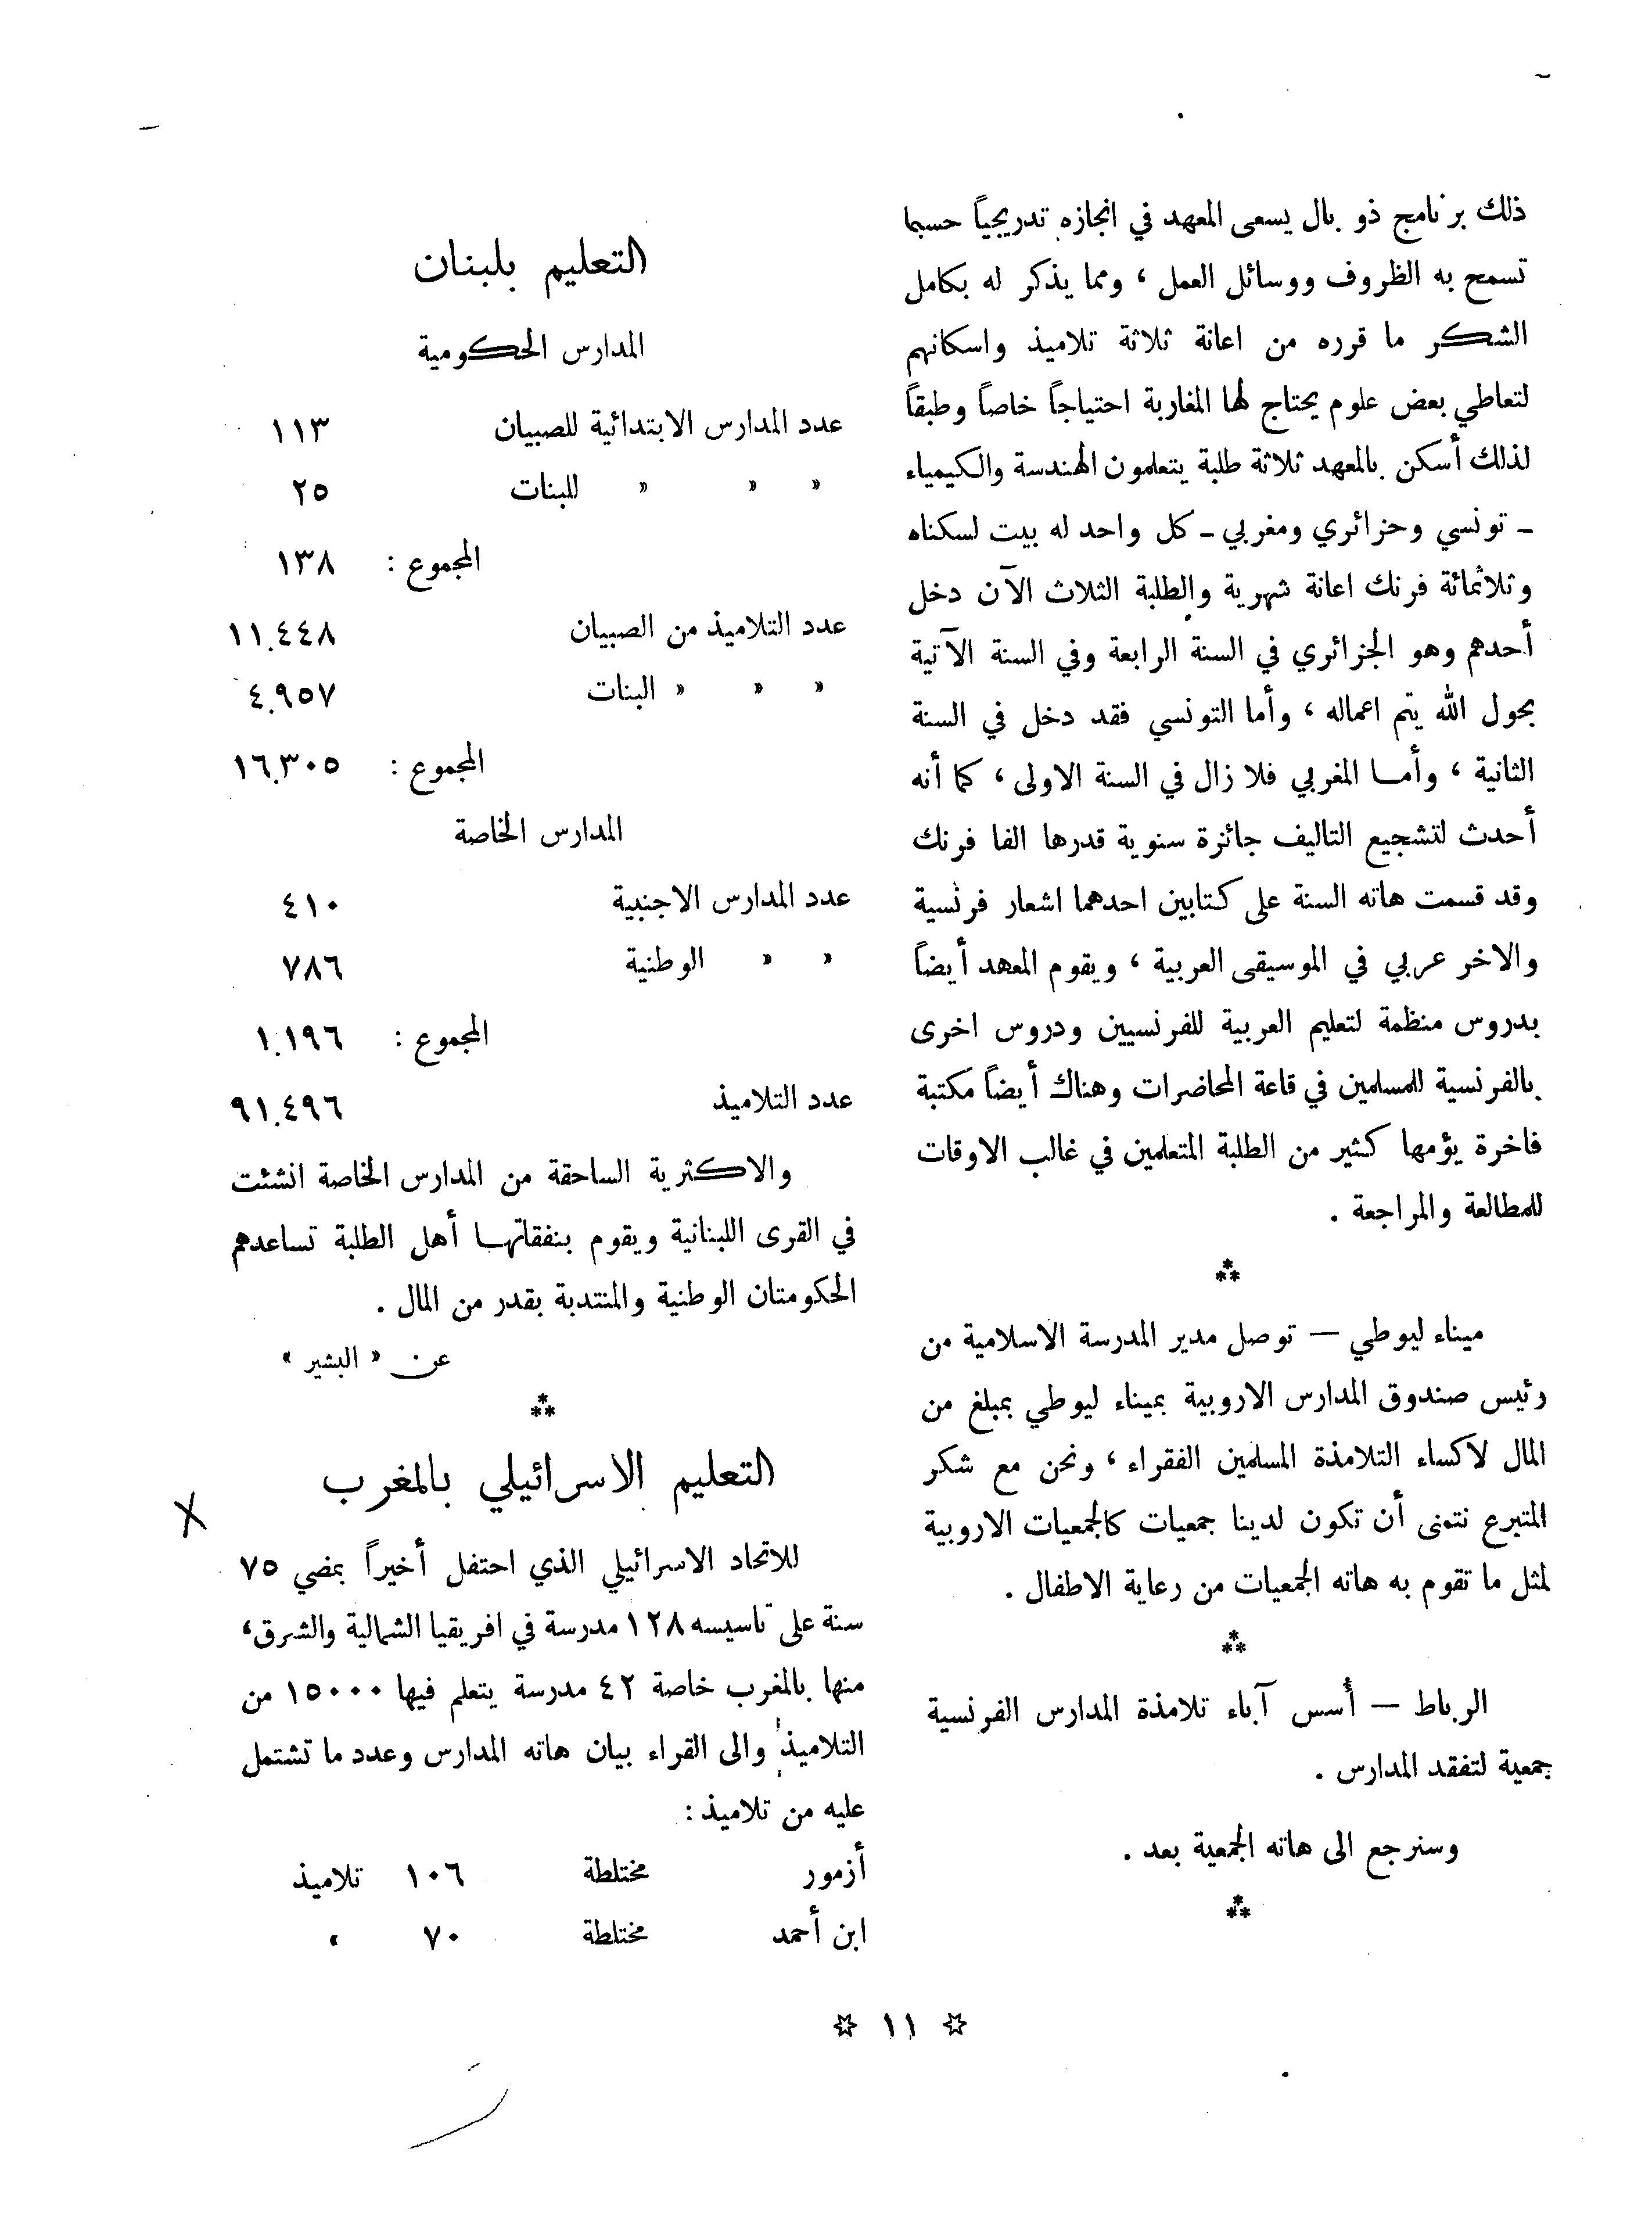 ذلك برنامج ذو بال يسعى المعهد في انجازه تدريجياً حسبما
تسمح به الظروف ووسائل العمل ، ومما يذكر له بكامل
الشكر ما قرره من اعانة ثلاثة تلاميذ واسكانهم
لتعاطي بعض علوم يحتاج لها المغاربة احتياجاً خاصاً وطبقاً
لذلك أسكن بالمعهد ثلاثة طلبة يتعلمون الهندسة والكيمياء
ـ تونسي وحزائري ومغربي ـ كل واحد له بيت لسكناه
وثلاثمائة فرنك اعانة شهرية والطلبة الثلاث الآن دخل
أحدهم وهو الجزائري في السنة الرابعة وفي السنة الآتية
بحول الله يتم اعماله ، وأما التونسي فقد دخل في السنة
الثانية ، وأما المغربي فلا زال في السنة الاولى ، كما أنه
أحدث لتشجيع التاليف جائزة سنوية قدرها الفا فرنك
وقد قسمت هاته السنة على كتابين احدهما اشعار فرنسية
والاخر عربي في الموسيقى العربية ، ويقوم المعهد أيضاً
بدروس منظمة لتعليم العربية للفرنسيين ودروس اخرى
بالفرنسية للمسلمين في قاعة المحاضرات وهناك أيضاً مكتبة
فاخرة يؤمها كثير من الطلبة المتعلمين في غالب الاوقات
للمطالعة والمراجعة .
⁂
ميناء ليوطي — توصل مدير المدرسة الاسلامية من
رئيس صندوق المدارس الاروبية بميناء ليوطي بمبلغ من
المال لاكساء التلامذة المسلمين الفقراء ، ونحن مع شكر
المتبرع نتمنى أن تكون لدينا جمعيات كالجمعيات الاروبية
لمثل ما تقوم به هاته الجمعيات من رعاية الاطفال .
⁂
الرباط — أسس آباء تلامذة المدارس الفرنسية
جمعية لتفقد المدارس .
وسنرجع الى هاته الجمعية بعد .
⁂
التعليم بلبنان
المدارس الحكومية
عدد المدارس الابتدائية للصبيان ١١٣
» » » للبنات ٢٥
المجموع : ١٣٨
عدد التلاميذ من الصبيان ١١.٤٤٨
» » » البنات ٤.٩٥٧
المجموع : ١٦.٣٠٥
المدارس الخاصة
عدد المدارس الاجنبية ٤١٠
» » الوطنية ٧٨٦
المجموع : ١.١٩٦
عدد التلاميذ ٩١.٤٩٦
والاكثرية الساحقة من المدارس الخاصة انشئت
في القرى اللبنانية ويقوم بنفقاتها أهل الطلبة تساعدهم
الحكومتان الوطنية والمنتدبة بقدر من المال .
عن « البشير »
⁂
التعليم الاسرائيلي بالمغرب
للاتحاد الاسرائيلي الذي احتفل أخيراً بمضي ٧٥
سنة على تاسيسه ١٢٨ مدرسة في افريقيا الشمالية والشرق،
منها بالمغرب خاصة ٤٢ مدرسة يتعلم فيها ١٥٠٠٠ من
التلاميذ والى القراء بيان هاته المدارس وعدد ما تشتمل
عليه من تلاميذ :
أزمور مختلطة ١٠٦ تلاميذ
ابن أحمد مختلطة ٧٠ »
☆ ١١ ☆